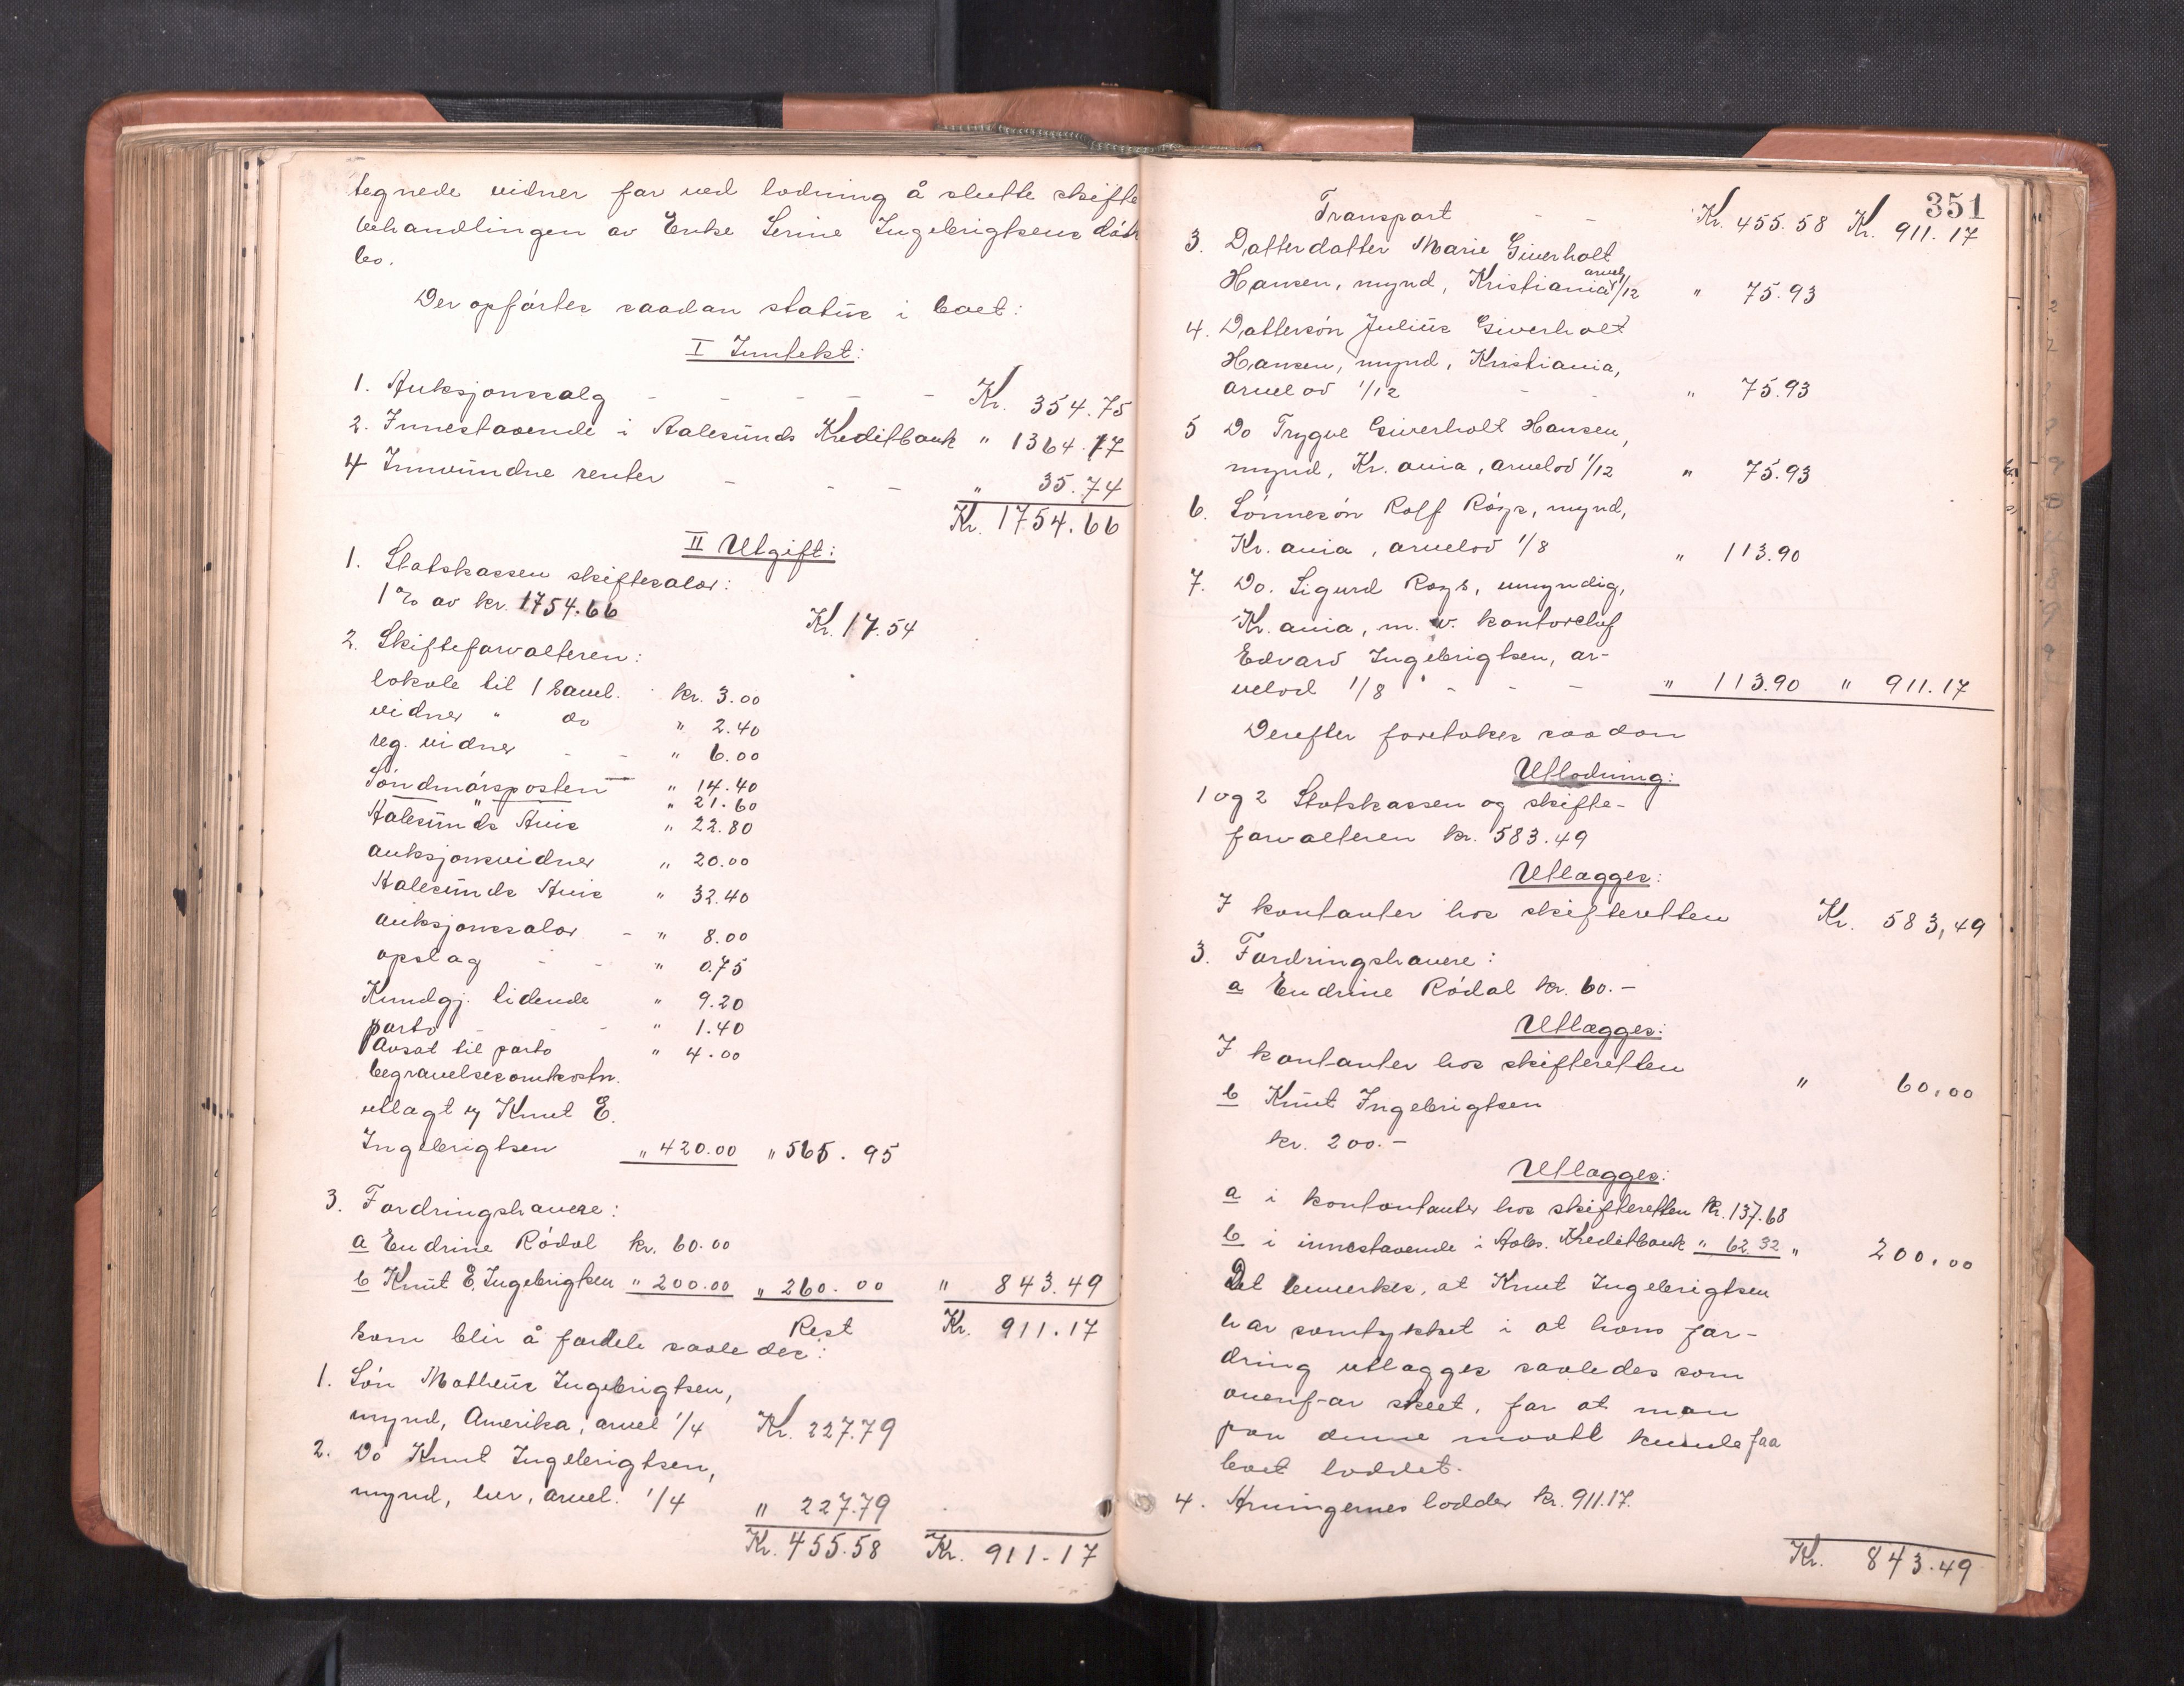 tegnede vidner for ved lodning å slutte skifte
behandlingen av Enke Serine Ingebrigtsens döds
bo.
Der opförtes saadan status i boet:
I Inntekt:
1. Auksjonssalg - - - - - Kr. 354.75
2. Innestaaende i Aalesunds Kreditbank " 1364.17
4 Innvundne renter - - - " 35.74
Kr. 1754.66
II Utgift:
1. Statskassen skiftesalær:
1% av kr. 1754.66 Kr. 17.54
2. Skifteforvalteren:
lokale til 1 saml. kr. 3.00
vidner " do " 2.40
reg. vidner - - " 6.00
Söndmörsposten " 14.40
" " 21.60
Aalesunds Avis " 22.80
auksjonsvidner " 20.00
Aalesunds Avis " 32.40
auksjonssalær - " 8.00
opslag - - " 0.75
Kundgj. tidende " 9.20
porto - - - " 1.40
Avsat til porto " 4.00
begravelsesomkostn.
utlagt av Knut E.
Ingebrigtsen " 420.00 " 565.95
3. Fordringshavere:
a Endrine Rödal kr. 60.00
b Knut E. Ingebrigtsen " 200.00 " 260.00 " 843.49
Rest Kr. 911.17
som blir å fordele saaledes:
1. Sön Matheus Ingebrigtsen,
mynd, Amerika, arvel 1/4 Kr. 227.79
2. Do Knut Ingebrigtsen,
mynd, her, arvel. 1/4 " 227.79
Kr. 455.58 Kr. 911.17
351
Transport - - Kr. 455.58 Kr. 911.17
3. Datterdatter Marie Giverholt
Hansen, mynd, Kristiania arvel 1/12 " 75.93
4. Dattersön Julius Giverholt
Hansen, mynd, Kristiania,
arvelod 1/12 - - " 75.93
5 Do Trygve Giverholt Hansen,
mynd, Kr. ania, arvelod 1/12 " 75.93
6. Sönnesön Rolf Röys, mynd,
Kr. ania, arvelod 1/8 " 113.90
7. Do. Sigurd Roys, umyndig,
Kr. ania, m. v. kontorchef
Edvard Ingebrigtsen, ar-
velod 1/8 - - - " 113.90 " 911.17
Derefter foretokes saadan
Utlodning:
1 og 2 Statskassen og skifte-
forvalteren kr. 583.49
Utlægges:
I kontanter hos skifteretten Kr. 583,49
3. Fordringshavere:
a Endrine Rödal kr. 60.-
Utlægges:
I kontanter hos skifteretten " 60.00
b Knut Ingebrigtsen
kr. 200.-
Utlægges:
a i kontontanter hos skifteretten kr. 137.68
b i innestaaende i Aales. Kreditbank " 62.32 " 200.00
Det bemerkes, at Knut Ingebrigtsen
har samtykket i at hans for-
dring utlægges saaledes som
ovenf-or skeet, for at man
paa denne maate kunde faa
boet loddet.
4. Arvingernes lodder kr. 911.17.
Kr. 843.49